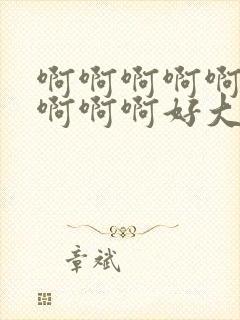 啊啊啊啊啊
啊啊啊好大
章斌